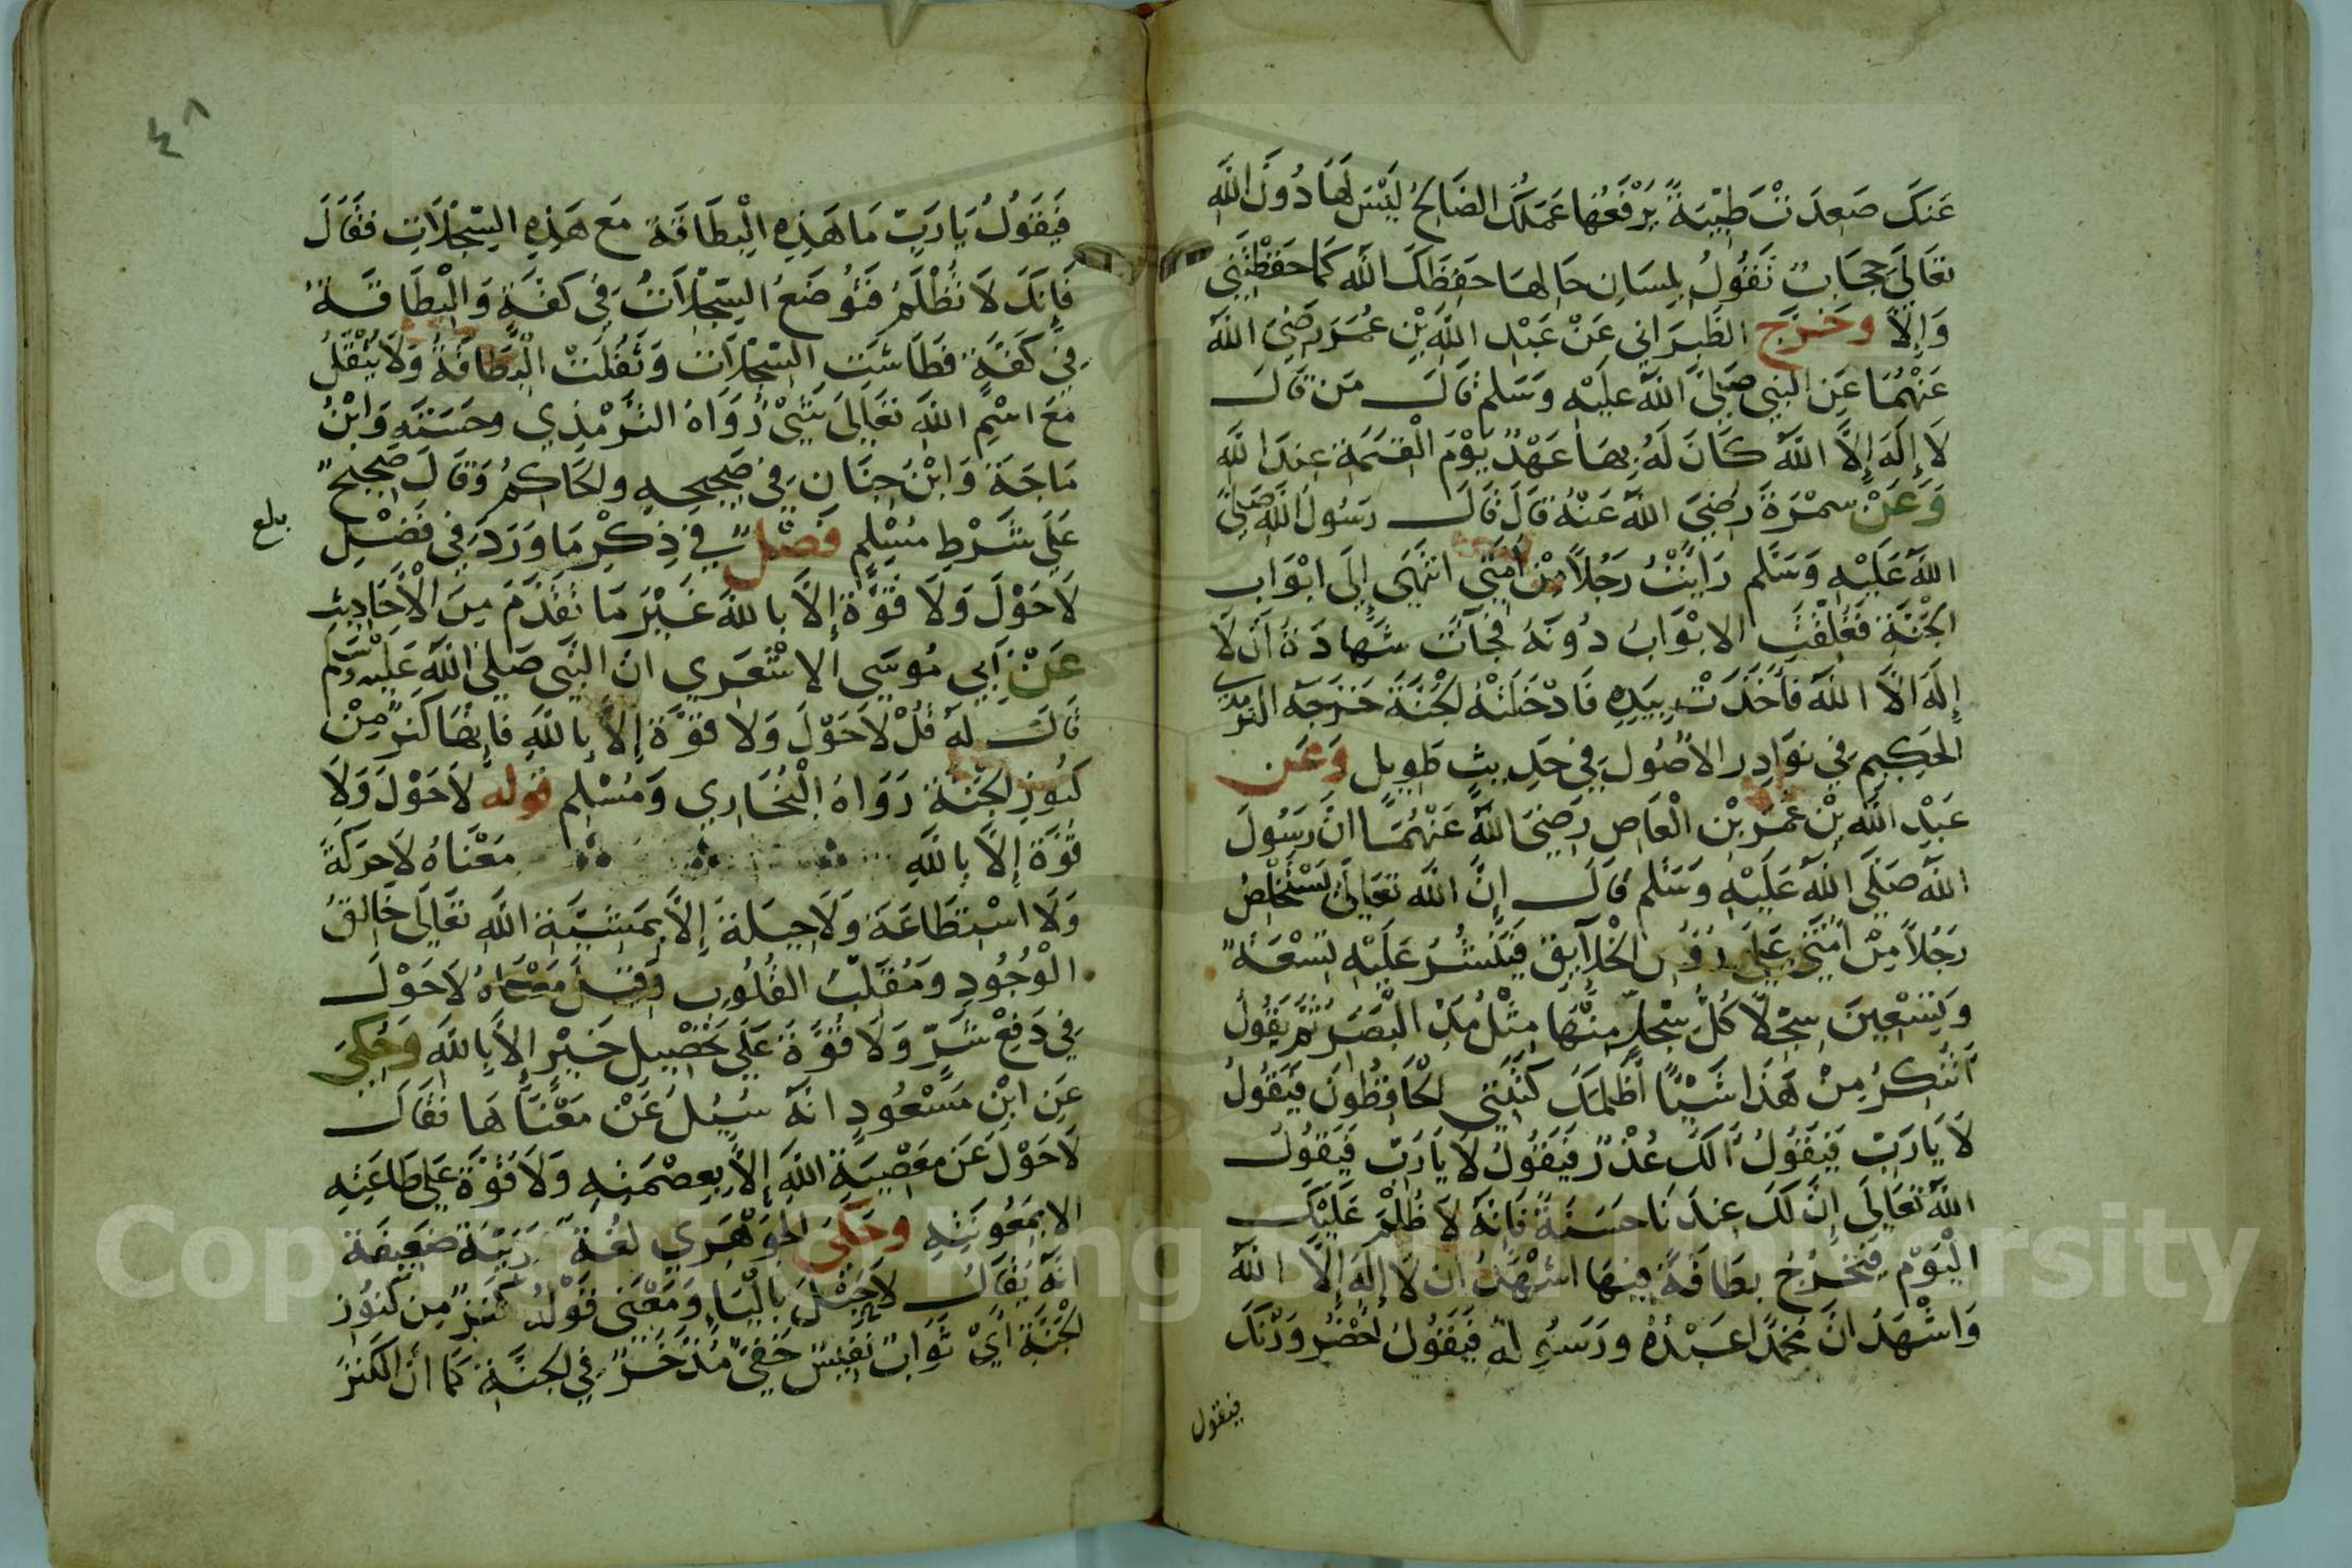 عَنكَ صَعِدَتْ طَيِّبَةً يَرْفَعُهَا عَمَلُكَ الصَّالِحُ لَيْسَ لَهَا دُونَ اللَّهِ
تَعَالَى حِجَابٌ تَقُولُ بِلِسَانِ حَالِهَا حَفِظَكَ اللَّهُ كَمَا حَفِظْتَنِي
وَإِلَّا وخَرَّجَ الطَّبَرَاني عَنْ عَبْدِ اللَّهِ بْنِ عُمَرَ رَضِيَ اللَّهُ
عَنْهُمَا عَنِ النبي صَلَّى اللَّهُ عَلَيْهِ وَسَلم قَالَ مَن قَالَ
لَا إِلَهَ إِلَّا اللَّهُ كَانَ لَهُ بِهَا عَهْدٌ يَوْمَ الْقِيَمَةِ عِندَ اللَّهِ
وَعَنْ سمْرَةَ رَضِيَ اللَّهُ عَنْهُ قَالَ قَالَ رَسُولُ اللَّهِ صَلَّى
اللَّهُ عَلَيْهِ وَسَلَّم رَايْتُ رَجُلًا مِنْ أُمَّتِي انتَهَى إِلَى ابْوَابِ
الْجَنَّةِ فَغُلِّقَتِ الابْوَابُ دُونَهُ فَجَآتْ شَهَادَةُ أَن لَا
إِلَهَ الَّا اللَّهُ فَأَخَذَتْ بِيَدِهِ فَادْخَلَتْهُ الْجَنَّةَ خَرَّجَهُ الترمذي
الحَكِيمُ فِي نَوَادِر الاصُول فِي حَدِيثٍ طَوِيلٍ وَعَن
عَبْدِ اللَّهِ بْنِ عَمْرِ بْنِ الْعَاص رَضِيَ اللَّهُ عَنْهُمَا انَّ رَسُولَ
اللَّهِ صَلَّى اللَّهُ عَلَيْهِ وَسَلم قَالَ إِنَّ اللَّهَ تَعَالَى يَسْتَخْلِصُ
رَجُلًا مِنْ أُمَّتِي عَلَى رُؤُسِ الْخَلَآيِقِ فَيَنْشُرُ عَلَيْهِ تِسْعَةً
وَتِسْعِينَ سِجْلًا كُلُّ سِجْلٍّ مِنْهَا مِثْلُ مَدِّ الْبَصَرِ ثُمَّ يَقُولُ
أَتُنكِرُ مِنْ هَذَا شَيْئًا أَظَلَمَكَ كَتَبَتِي الْحَافِظُونَ فَيَقُولُ
لَا يَارَبِّ فَيَقُولُ أَلَكَ عُذْرٌ فَيَقُولُ لَا يَارَبِّ فَيَقُولُ
اللَّهُ تَعَالَى إِنَّ لَكَ عِندَنَا حَسَنَةً فَإِنَّهُ لَا ظُلْمَ عَلَيْكَ
الْيَوْمَ فَتَخْرُجُ بِطَاقَةٌ فِيهَا اشْهَدُ ان لَا إِلَهَ إِلَّا اللَّهُ
وَاشْهَدُ انَّ مُحَمَّدًا عَبْدُهُ وَرَسُولُهُ فَيَقُولُ احْضُرْ وَزْنَكَ
فيقول
٤٨
فَيَقُولُ يَارَبِّ مَا هَذِهِ الْبِطَاقَةُ مَعَ هَذِهِ السِّجِلَّاتِ فَقَالَ
فَإِنَّكَ لَا تُظْلَمُ فَتُوضَعُ السِّجِلَّاتُ فِي كَفَّةٍ وَالْبِطَاقَةُ
فِي كَفَّةٍ فَطَاشَتِ السِّجِلَّاتُ وَثَقُلَتْ الْبِطَاقَةُ وَلَا يَثْقُلُ
مَعَ اسْمِ اللَّهِ تَعَالَى شَيْءٌ رَوَاهُ التِّرْمِذِي وحَسَّنَهُ وَابْنُ
مَاجَةَ وَابْنُ حِبَّانَ فِي صَحِيحِهِ والحَاكِمُ وَقَالَ صَحِيحٌ
عَلَى شَرْطِ مُسْلِمٍ فَصْلٌ فِي ذِكْرِ مَا وَرَدَ فِي فَضْلِ
بلغ
لَا حَوْلَ وَلَا قُوَّةَ إِلَّا بِاللَّهِ غَيْرَ مَا تَقَدَّمَ مِنَ الْأَحَادِيثِ
عَنْ أَبِي مُوسَى الاشْعَرِي انَّ النَّبِي صَلَّى اللَّهُ عَلَيْهِ وَسَلم
قَالَ لَهُ قُلْ لَا حَوْلَ وَلَا قُوَّةَ إِلَّا بِاللَّهِ فَإِنَّهَا كَنزٌ مِنْ
كُنُوزِ الْجَنَّةِ رَوَاهُ الْبُخَارِي وَمُسْلِم قوله لَا حَوْلَ وَلَا
قُوَّةَ إِلَّا بِاللَّهِ مَعْنَاهُ لَا حَرَكَةَ
وَلَا اسْتِطَاعَةَ وَلَا حِيلَةَ إِلَّا بِمَشِيَّةِ اللَّهِ تَعَالَى خَالِقُ
الْوُجُودِ وَمُقَلِّبُ الْقُلُوبِ وَقِيلَ مَعْنَاهُ لَا حَوْلَ
فِي دَفْعِ شَرٍّ وَلَا قُوَّةَ عَلَى تَحْصِيلِ خَيْرٍ إِلَّا بِاللَّهِ وَحُكِيَ
عَنِ ابْنِ مَسْعُودٍ انَّهُ سُيِلَ عَنْ مَعْنَاهَا فَقَالَ
لَا حَوْلَ عَن مَعْصِيَةِ اللَّهِ إِلَّا بِعِصْمَتِهِ وَلَا قُوَّةَ عَلَى طَاعَتِهِ
الا بِمَعُونَتِهِ وحَكَى الجَوْهَرِي لُغَةً غَرِيبَةً ضَعِيفَةً
انَّهُ يُقَالُ لَا حَيْلَ بِالْيَاءِ وَمَعْنَى قَوْلِهِ كَنزٌ مِن كُنُوزِ
الْجَنَّةِ أَيْ ثَوَابٌ نَفِيسٌ خَفِيٌّ مُدَّخَرٌ فِي الجَنَّةِ كَمَا أَنَّ الْكَنزَ
Copyright © King Saud University